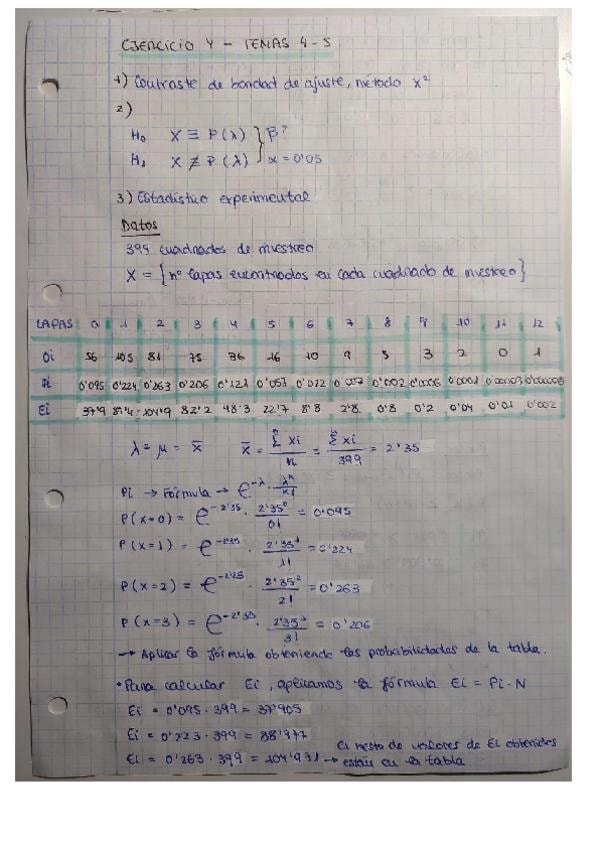 EJERCICIO 4 - TEMAS 4-5
1) Contraste de bondad de ajuste, método x²
2)
H₀ X ≡ P(λ) } β?
H₁ X ≢ P(λ) } α = 0'05
3) Estadístico experimental
Datos
399 cuadrados de muestreo
X = { nº lapas encontradas en cada cuadrado de muestreo }
LAPAS 0 1 2 3 4 5 6 7 8 9 10 11 12
Oi 56 105 81 75 36 16 10 9 5 3 2 0 1
Pi 0'095 0'224 0'263 0'206 0'121 0'057 0'022 0'007 0'002 0'0006 0'0001 0'00003 0'000005
Ei 37'9 104'9 82'2 48'3 22'7 8'8 2'8 0'8 0'2 0'04 0'01 0'002
λ = μ = x̄ x̄ = Σ xi / n = Σ xi / 399 = 2'35
Pi → Fórmula → e^-λ · λ^k / k!
P(x=0) = e^-2'35 · 2'35⁰ / 0! = 0'095
P(x=1) = e^-2'35 · 2'35¹ / 1! = 0'224
P(x=2) = e^-2'35 · 2'35² / 2! = 0'263
P(x=3) = e^-2'35 · 2'35³ / 3! = 0'206
→ Aplicar la fórmula obteniendo las probabilidades de la tabla.
• Para calcular Ei, aplicamos la fórmula Ei = Pi · N
Ei = 0'095 · 399 = 37'905
Ei = 0'223 · 399 = 88'977
Ei = 0'263 · 399 = 104'931 → El resto de valores de Ei obtenidos
están en la tabla